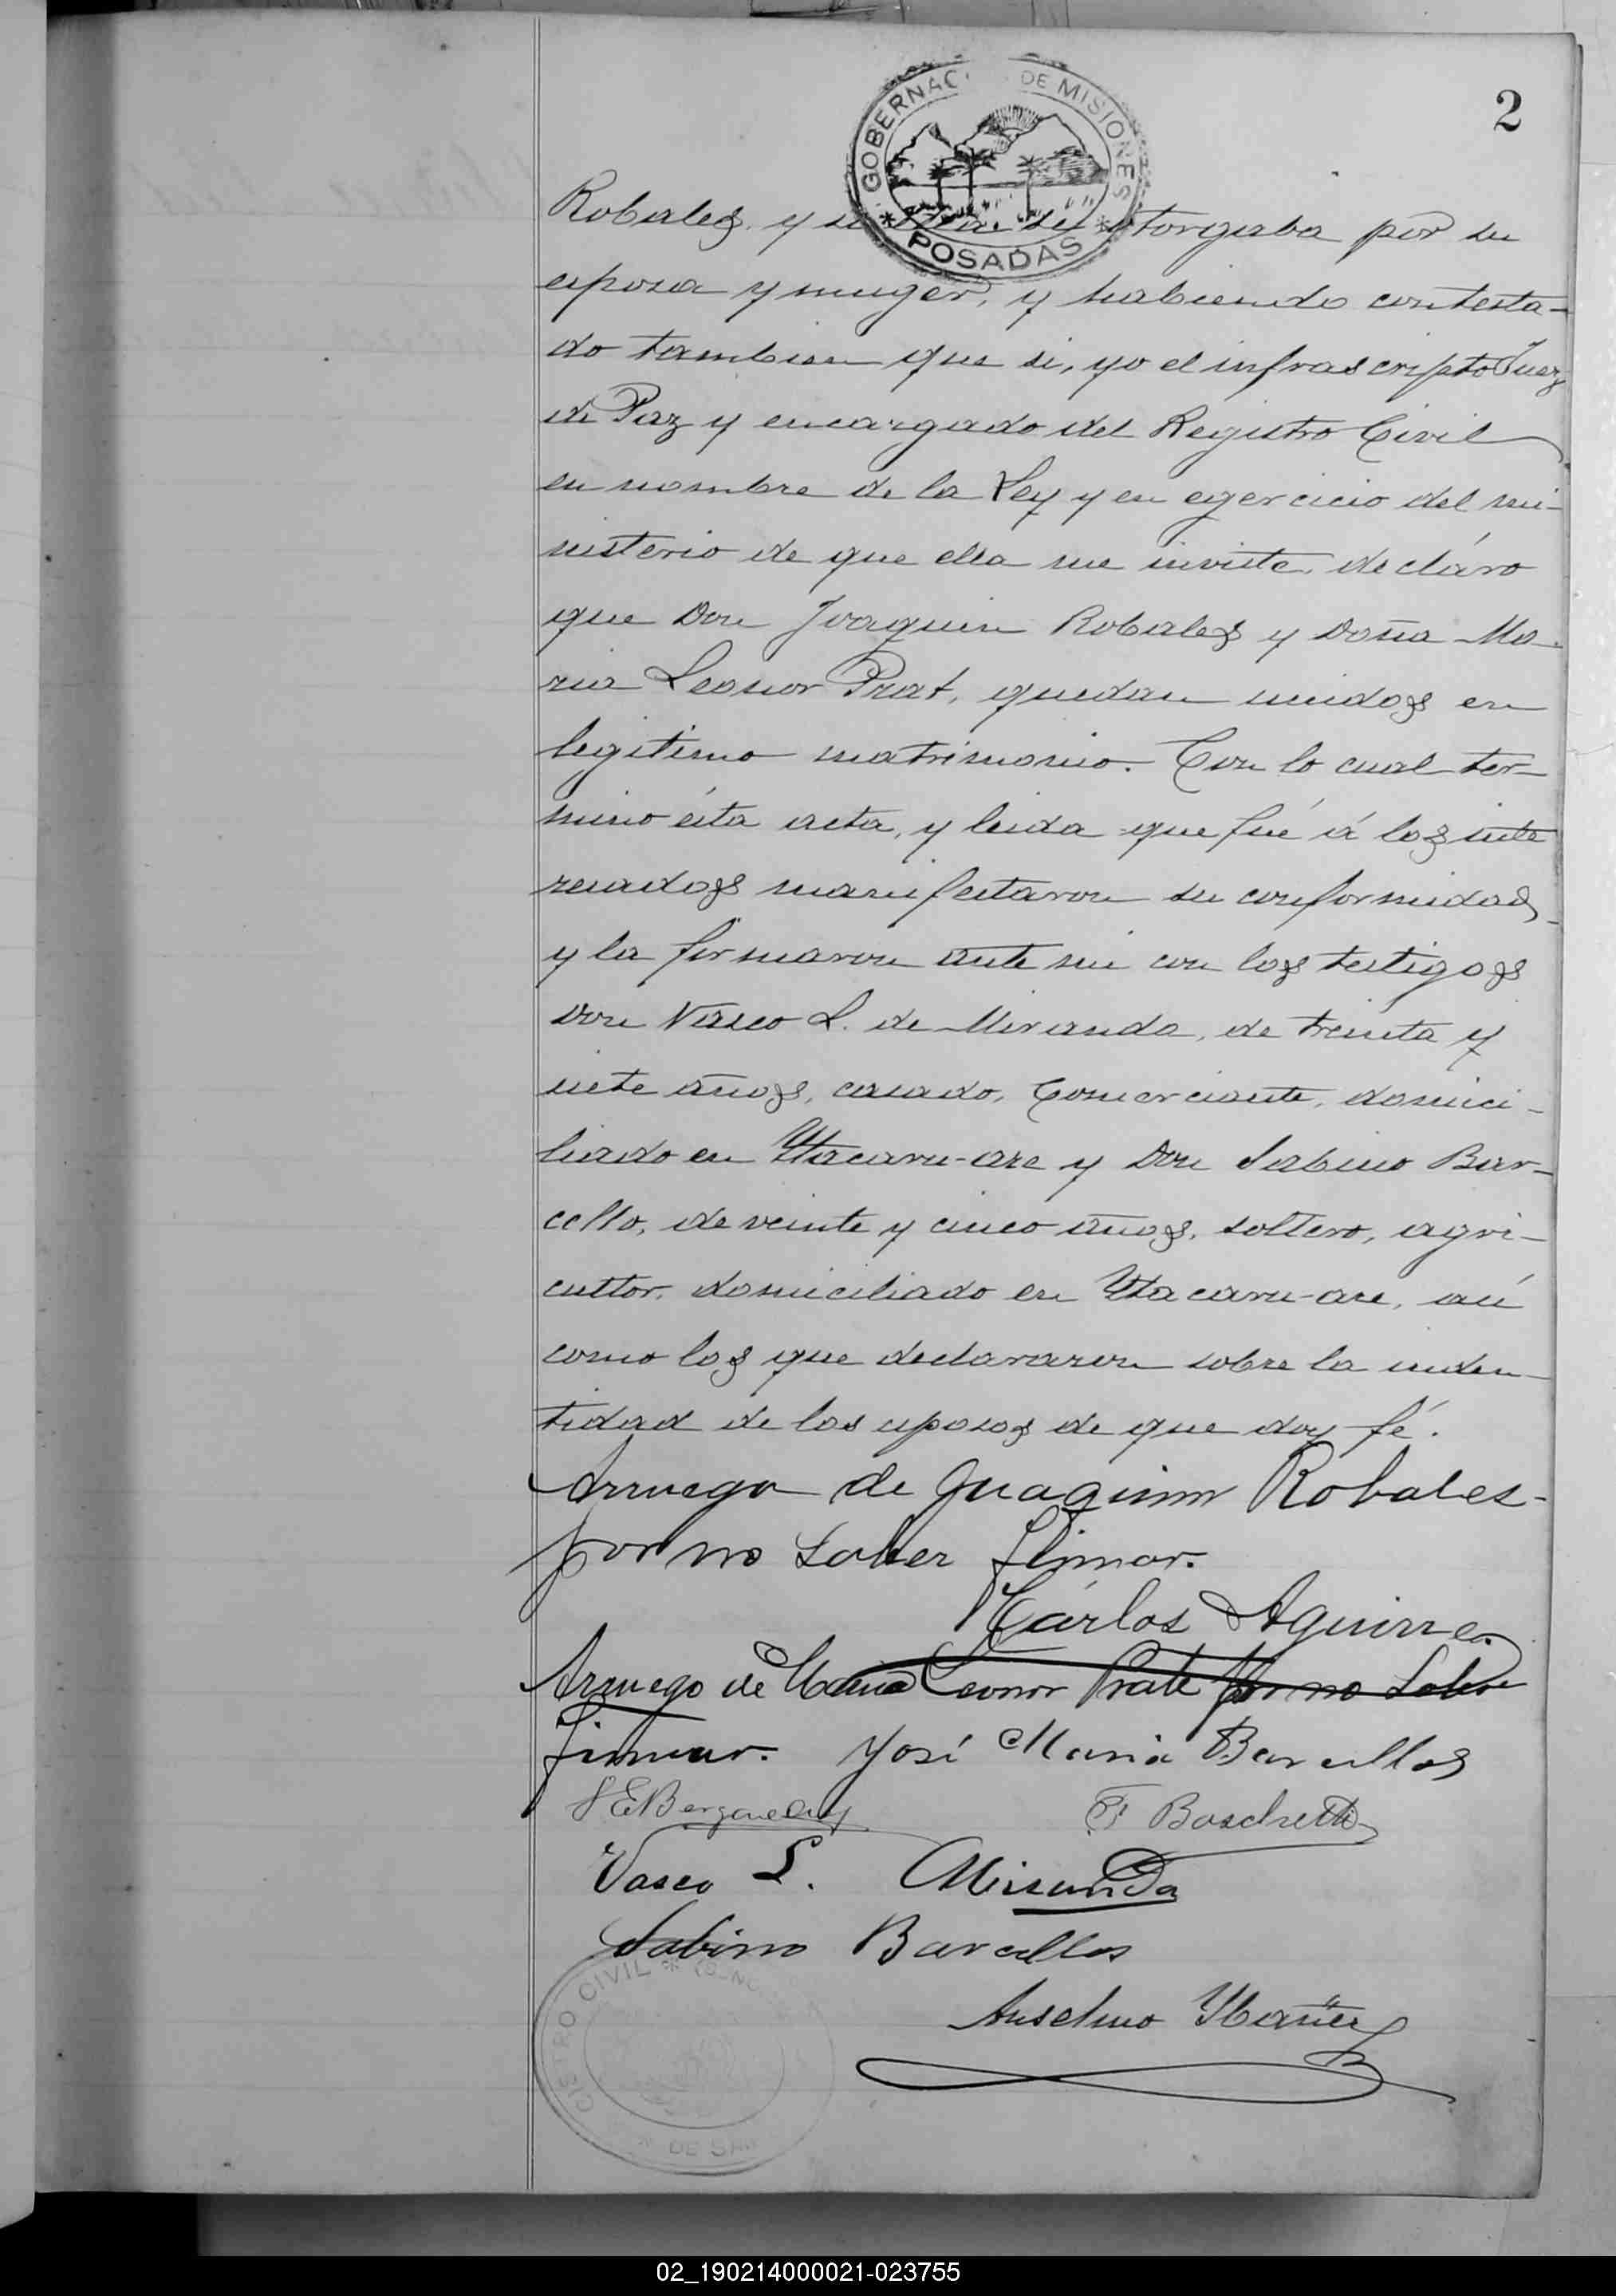 2
GOBERNAC DE MISIONES
* POSADAS *
Robales, y se otorgaba por su
esposa y muger, y habiendo contesta-
do tambien que si, yo el infrascripto Juez
de Paz y encargado del Registro Civil
en nombre de la Ley y en egercicio del mi-
nisterio de que ella me inviste, decláro
que Don Joaquin Robales y Doña Ma-
ria Leonor Prat, quedan unidos en
legitimo matrimonio. Con lo cual ter-
mino ésta acta, y leida que fué á los inte
resados manifestaron su conformidad,
y la firmaron ante mi con los testigos
Don Vasco L. de Miranda, de treinta y
siete años, casado, Comerciante, domici-
liado en Ytacaru-are y Don Sabino Bar-
cello, de veinte y cinco años, soltero, agri-
cultor, domiciliado en Ytacaru-are, así
como los que declararon sobre la inden-
tidad de los esposos de que doy fé.
Arruego de Juaquinn Robales-
por no Saber firmar.
Cárlos Aguirre.
Arruego de Maria Leonor Prate por no Saber
firmar. José Maria Barcellos
F Boschetti
Vasco L. Miranda
Sabino Barcellos
CIVIL *
Anselmo Ybañez
DE
02_190214000021-023755